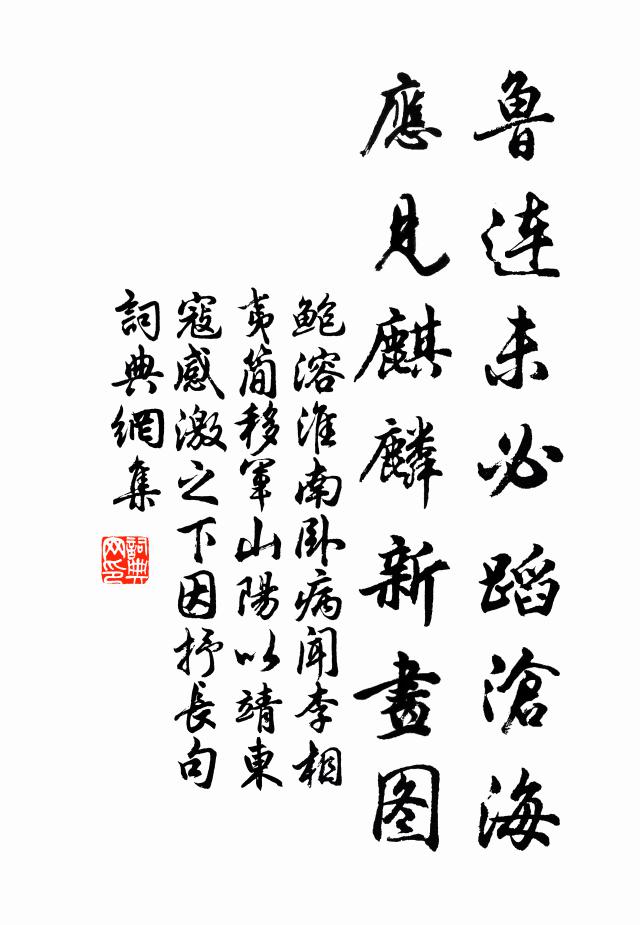 魯连未必蹈滄海
應見麒麟新畫图
鮑溶淮南卧病闻李相
夷简移軍山陽以靖東
寇感激之下因抒長句
詞典網集
詞典网印